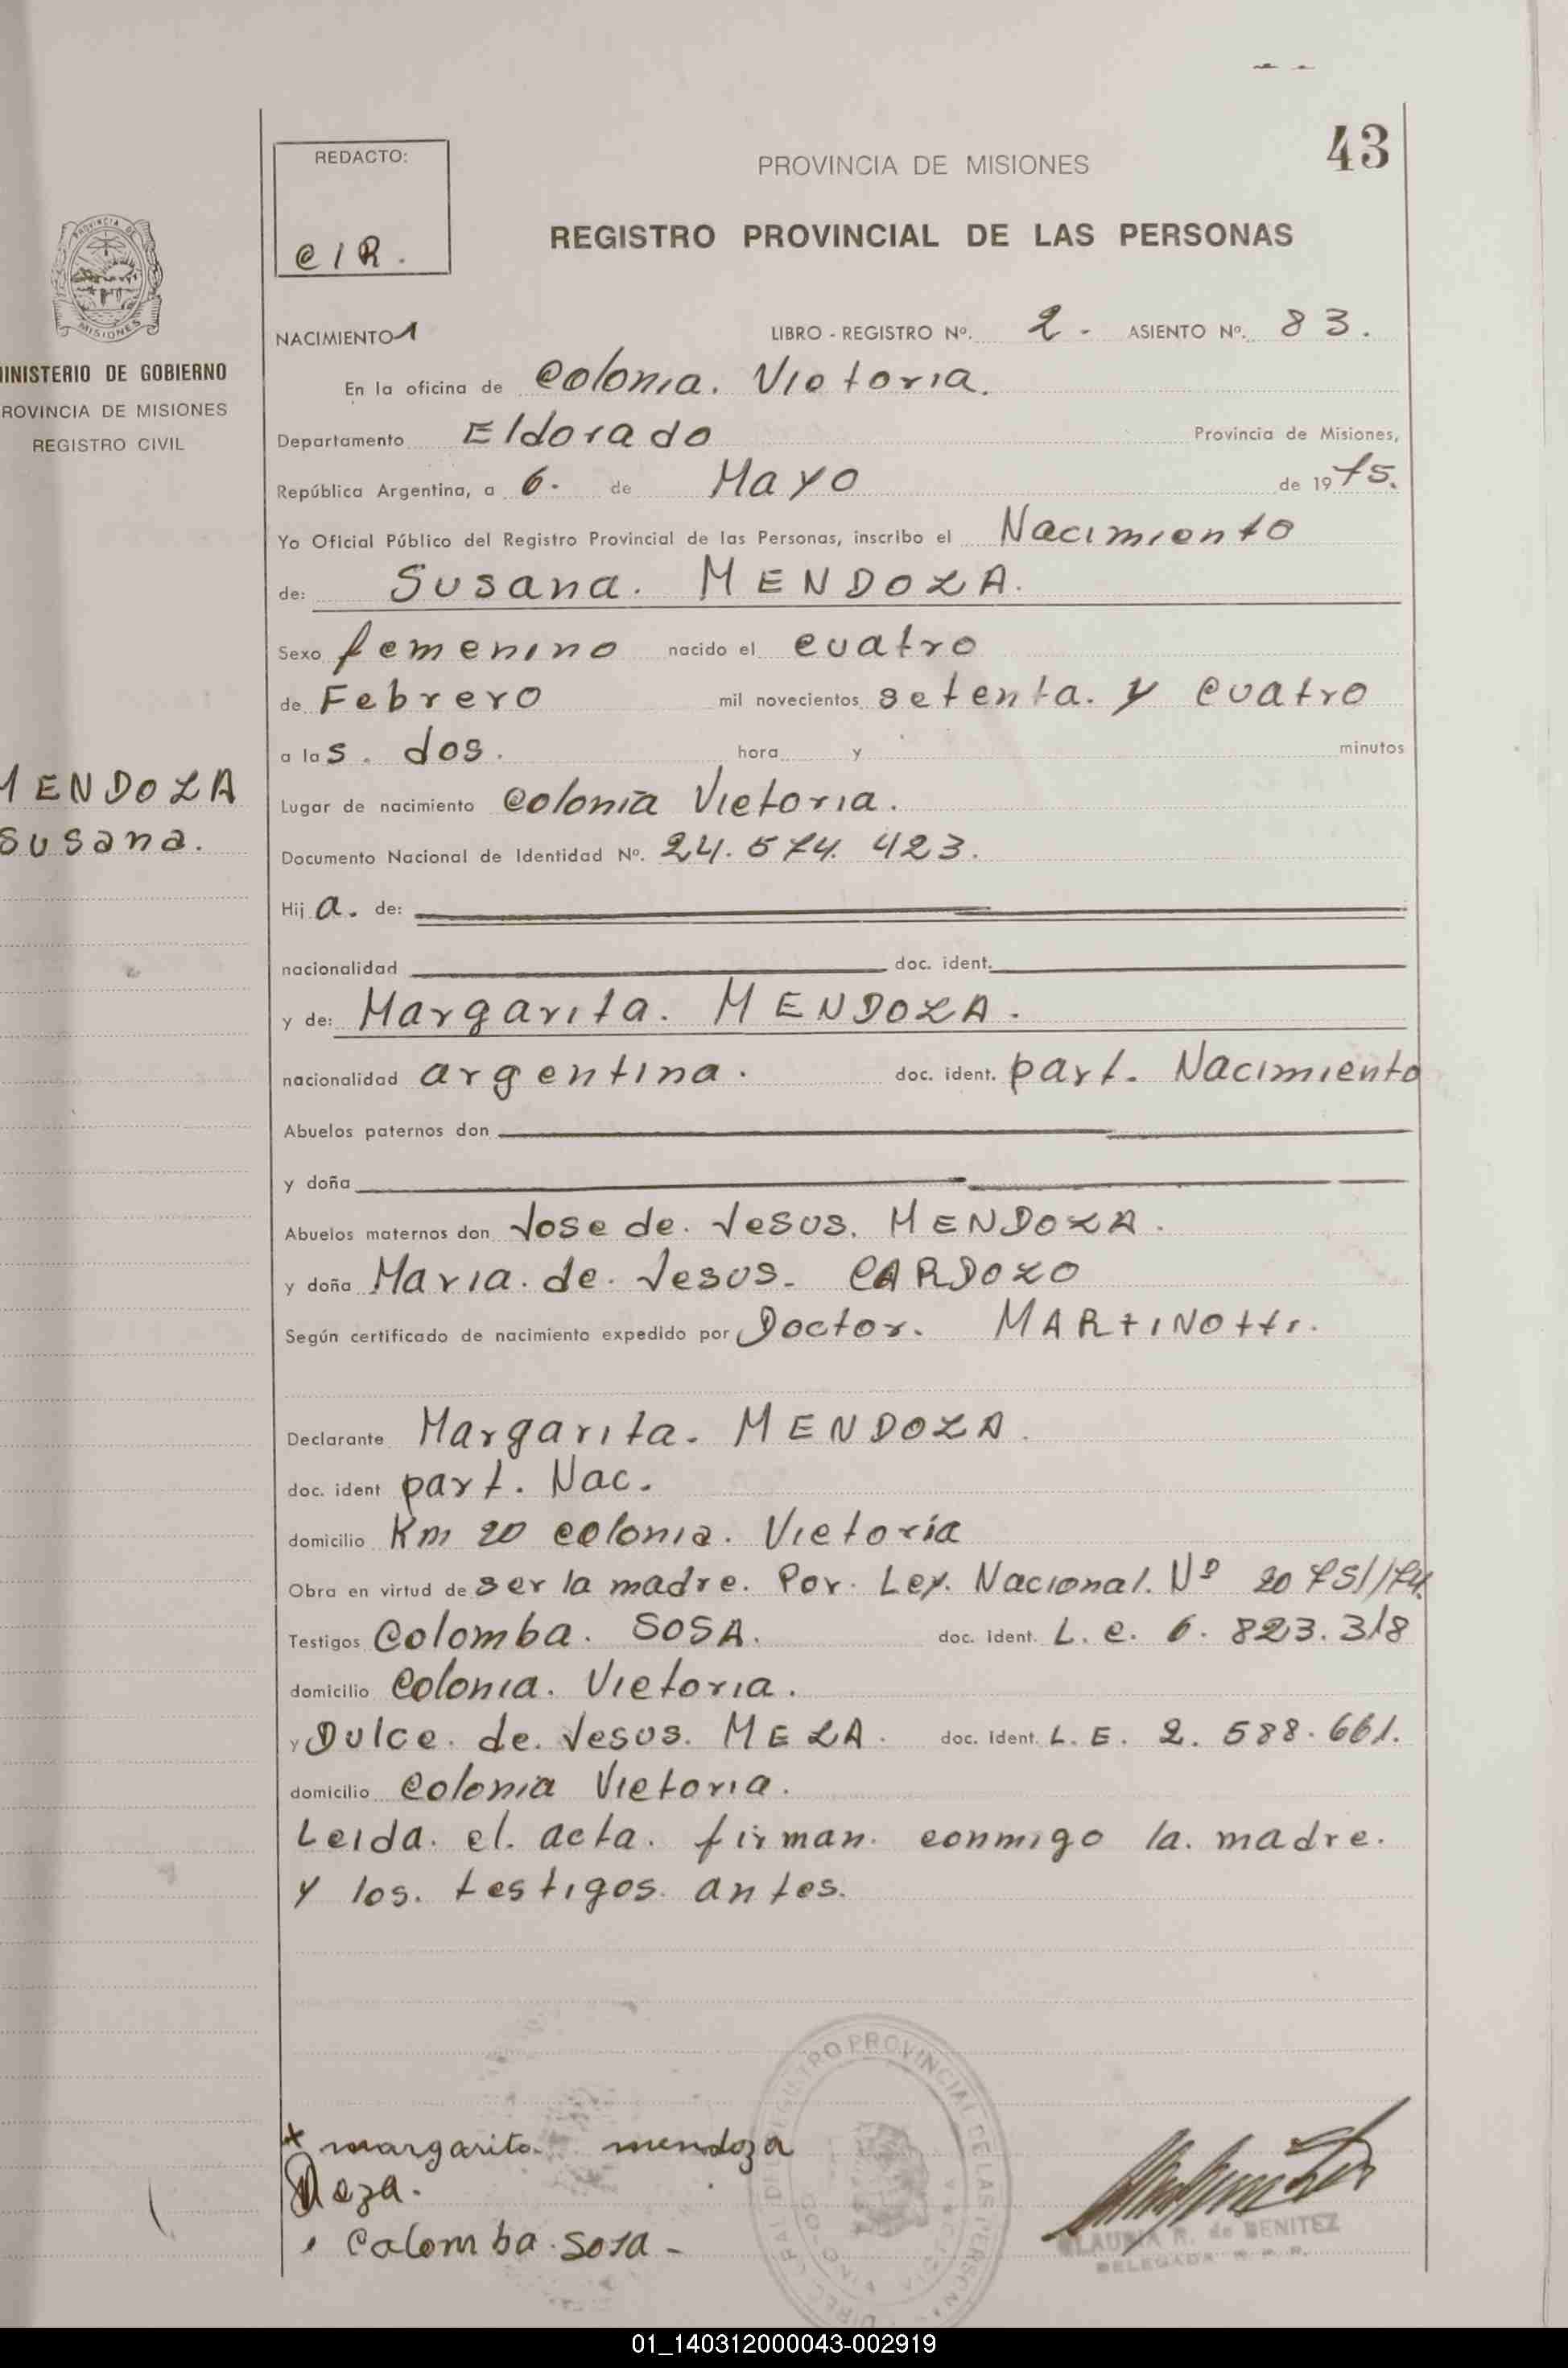 43
REDACTO:
C I R.
PROVINCIA DE MISIONES
REGISTRO PROVINCIAL DE LAS PERSONAS
MISIONES
INISTERIO DE GOBIERNO
ROVINCIA DE MISIONES
REGISTRO CIVIL
MENDOZA
Susana.
NACIMIENTO 1 LIBRO - REGISTRO Nº. 2 - ASIENTO Nº. 83.
En la oficina de Colonia. Victoria.
Departamento Eldorado Provincia de Misiones,
República Argentina, a 6. de Mayo de 1975.
Yo Oficial Público del Registro Provincial de las Personas, inscribo el Nacimiento
de: Susana. MENDOZA.
Sexo femenino nacido el cuatro
de Febrero mil novecientos setenta. y cuatro
a las. dos. hora y minutos
Lugar de nacimiento Colonia Victoria.
Documento Nacional de Identidad Nº. 24.574.423.
Hija. de:
nacionalidad doc. ident.
y de: Margarita. MENDOZA.
nacionalidad argentina. doc. ident. part. Nacimiento
Abuelos paternos don
y doña
Abuelos maternos don Jose de. Jesus. MENDOZA.
y doña Maria. de. Jesus- CARDOZO
Según certificado de nacimiento expedido por Doctor. MARTINOtti.
Declarante Margarita. MENDOZA.
doc. ident part. Nac.
domicilio Km 20 colonia. Victoria
Obra en virtud de ser la madre. Por. Ley. Nacional. Nº 20751/74.
Testigos Colomba. SOSA. doc. ident. L. C. 6. 823. 318
domicilio Colonia. Victoria.
y Dulce. de. Jesus. MEZA. doc. Ident. L. E. 2. 588. 661.
domicilio Colonia Victoria.
Leida. el. acta. firman. conmigo la. madre.
y los. testigos. antes.
x margarita mendoza
Meza.
Colomba. Sosa -
REGISTRO PROVINCIAL DE LAS PERSONAS
CLAUDIA R. de BENITEZ
DELEGADA R. P. P.
01_140312000043-002919